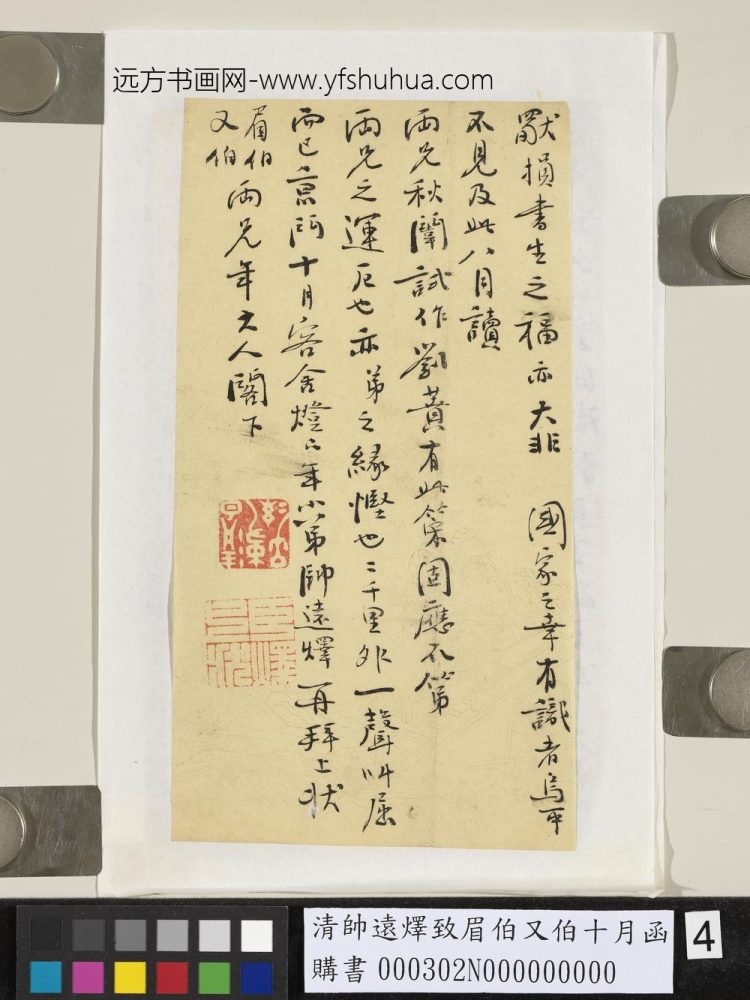 远方书画网-www.yfshuhua.com
獸損書生之福亦大非 國家之幸有識者烏可
不見及此八月讀
兩兄秋闈試作劉蕡有此策固應不第
兩兄之運厄也亦弟之緣慳也二千里外一聲叫屈
而已京師十月客舍燈下年小弟帥遠燡再拜上狀
眉伯
又伯
兩兄年大人閣下
清帥遠燡致眉伯又伯十月函
購書 000302N000000000
4